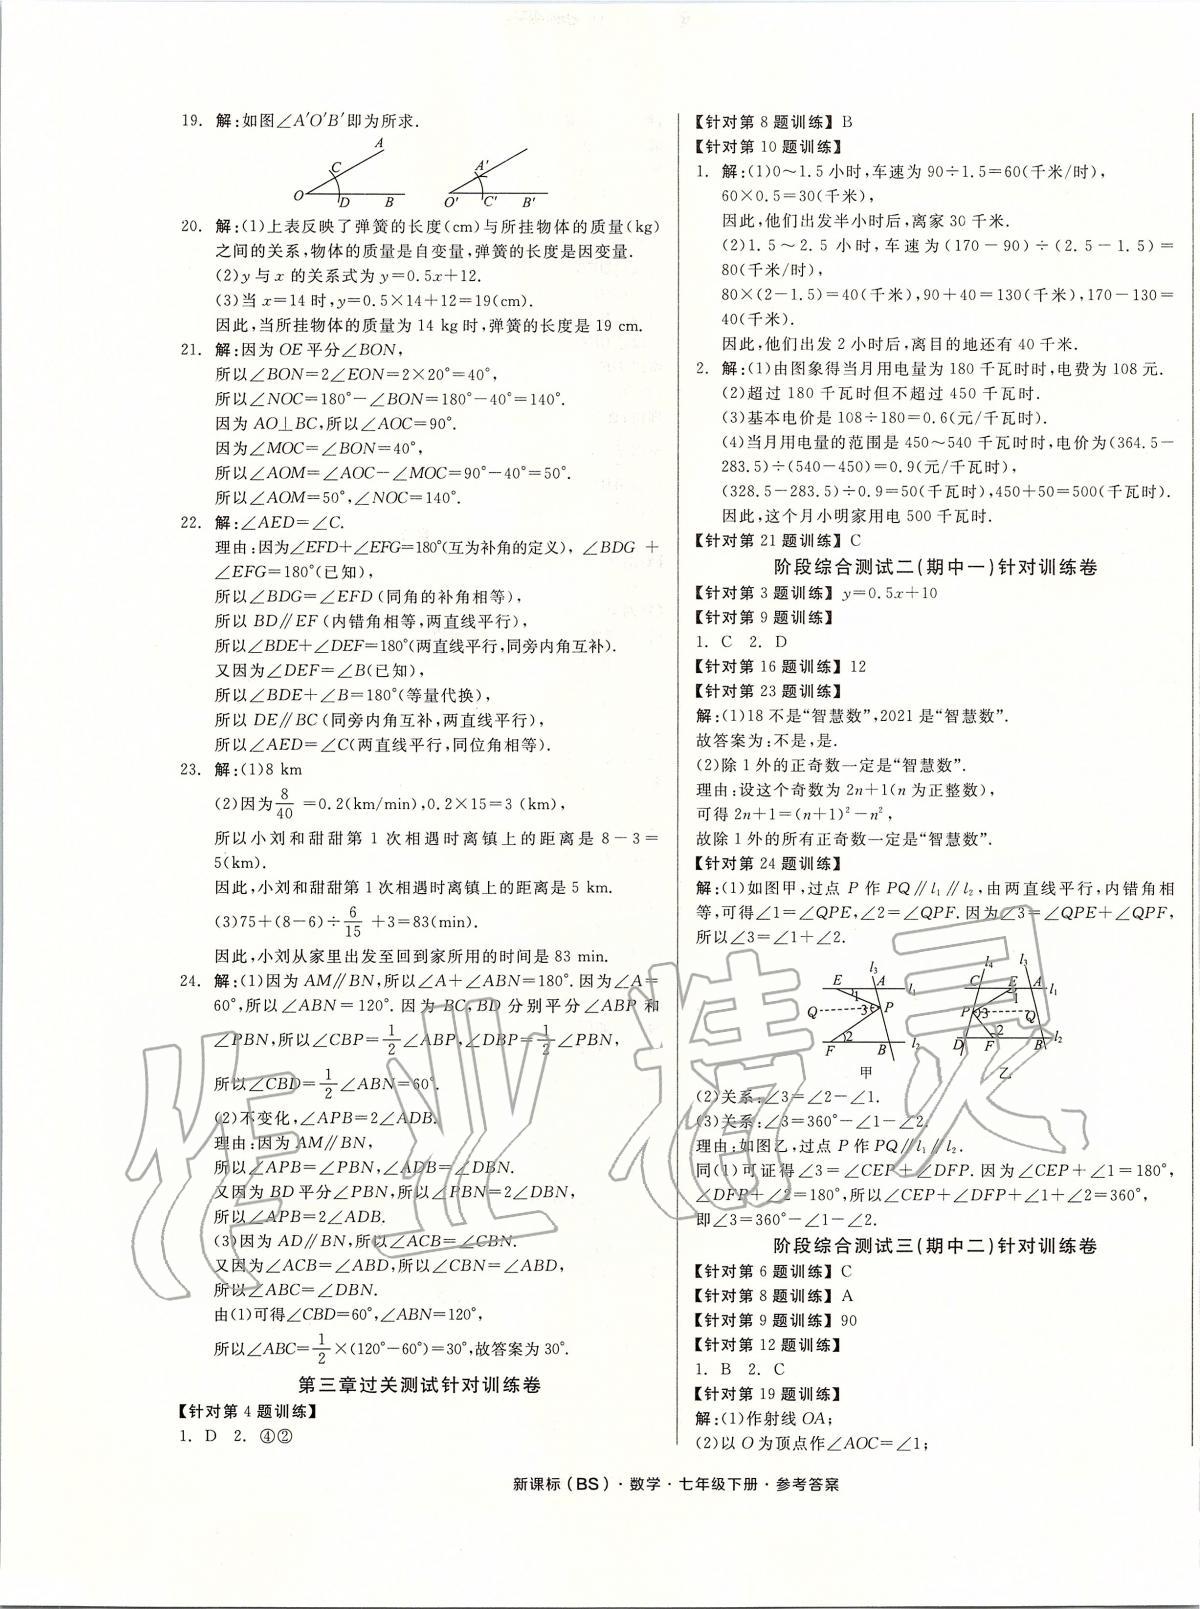 19. 解:如图∠A′O′B′即为所求.
A
C
O
D
B
A′
O′
C′
B′
20. 解:(1)上表反映了弹簧的长度(cm)与所挂物体的质量(kg)
之间的关系,物体的质量是自变量,弹簧的长度是因变量.
(2)y与x 的关系式为 y=0.5x+12.
(3)当 x=14 时,y=0.5×14+12=19(cm).
因此,当所挂物体的质量为 14 kg时,弹簧的长度是 19 cm.
21. 解:因为OE平分∠BON,
所以∠BON=2∠EON=2×20°=40°,
所以∠NOC=180°-∠BON=180°-40°=140°.
因为 AO⊥BC,所以∠AOC=90°.
因为∠MOC=∠BON=40°,
所以∠AOM=∠AOC-∠MOC=90°-40°=50°.
所以∠AOM=50°,∠NOC=140°.
22. 解:∠AED=∠C.
理由:因为∠EFD+∠EFG=180°(互为补角的定义), ∠BDG +
∠EFG=180°(已知),
所以∠BDG=∠EFD(同角的补角相等),
所以 BD∥EF(内错角相等,两直线平行),
所以∠BDE+∠DEF=180°(两直线平行,同旁内角互补).
又因为∠DEF=∠B(已知),
所以∠BDE+∠B=180°(等量代换),
所以 DE∥BC(同旁内角互补,两直线平行),
所以∠AED=∠C(两直线平行,同位角相等).
23. 解:(1)8 km
(2)因为8/40=0.2(km/min),0.2×15=3 (km),
所以小刘和甜甜第 1 次相遇时离镇上的距离是 8-3=
5(km).
因此,小刘和甜甜第 1 次相遇时离镇上的距离是 5 km.
(3)75+(8-6)÷6/15+3=83(min).
因此,小刘从家里出发至回到家所用的时间是 83 min.
24. 解:(1)因为 AM∥BN,所以∠A+∠ABN=180°.因为∠A=
60°,所以∠ABN=120°.因为 BC,BD 分别平分∠ABP 和
∠PBN,所以∠CBP=1/2∠ABP,∠DBP=1/2∠PBN,
所以∠CBD=1/2∠ABN=60°.
(2)不变化,∠APB=2∠ADB.
理由:因为 AM∥BN,
所以∠APB=∠PBN,∠ADB=∠DBN.
又因为 BD 平分∠PBN,所以∠PBN=2∠DBN,
所以∠APB=2∠ADB.
(3)因为 AD∥BN,所以∠ACB=∠CBN.
又因为∠ACB=∠ABD,所以∠CBN=∠ABD,
所以∠ABC=∠DBN.
由(1)可得∠CBD=60°,∠ABN=120°,
所以∠ABC=1/2×(120°-60°)=30°,故答案为 30°.
第三章过关测试针对训练卷
【针对第 4 题训练】
1. D 2. ④②
【针对第 8 题训练】B
【针对第 10 题训练】
1. 解:(1)0～1.5 小时,车速为 90÷1.5=60(千米/时),
60×0.5=30(千米),
因此,他们出发半小时后,离家 30 千米.
(2)1.5～2.5 小时,车速为(170-90)÷(2.5-1.5)=
80(千米/时),
80×(2-1.5)=40(千米),90+40=130(千米),170-130=
40(千米).
因此,他们出发 2 小时后,离目的地还有 40 千米.
2. 解:(1)由图象得当月用电量为 180 千瓦时时,电费为 108 元.
(2)超过 180 千瓦时但不超过 450 千瓦时.
(3)基本电价是 108÷180=0.6(元/千瓦时).
(4)当月用电量的范围是 450～540 千瓦时时,电价为(364.5-
283.5)÷(540-450)=0.9(元/千瓦时),
(328.5-283.5)÷0.9=50(千瓦时),450+50=500(千瓦时).
因此,这个月小明家用电 500 千瓦时.
【针对第 21 题训练】C
阶段综合测试二(期中一)针对训练卷
【针对第 3 题训练】y=0.5x+10
【针对第 9 题训练】
1. C 2. D
【针对第 16 题训练】12
【针对第 23 题训练】
解:(1)18 不是“智慧数”,2021 是“智慧数”.
故答案为:不是,是.
(2)除 1 外的正奇数一定是“智慧数”.
理由:设这个奇数为 2n+1(n 为正整数),
可得 2n+1=(n+1)²-n²,
故除 1 外的所有正奇数一定是“智慧数”.
【针对第 24 题训练】
解:(1)如图甲,过点 P 作 PQ∥l₁∥l₂,由两直线平行,内错角相
等,可得∠1=∠QPE,∠2=∠QPF.因为∠3=∠QPE+∠QPF,
所以∠3=∠1+∠2.
l₃
E A l₁
1
Q 3 P
2 l₂
F B
甲
l₄ l₃
C E A l₁
1
P 3 Q
2 l₂
D F B
乙
(2)关系:∠3=∠2-∠1.
(3)关系:∠3=360°-∠1-∠2.
理由:如图乙,过点 P 作 PQ∥l₁∥l₂.
同(1)可证得∠3=∠CEP+∠DFP.因为∠CEP+∠1=180°,
∠DFP+∠2=180°,所以∠CEP+∠DFP+∠1+∠2=360°,
即∠3=360°-∠1-∠2.
阶段综合测试三(期中二)针对训练卷
【针对第 6 题训练】C
【针对第 8 题训练】A
【针对第 9 题训练】90
【针对第 12 题训练】
1. B 2. C
【针对第 19 题训练】
解:(1)作射线 OA;
(2)以 O 为顶点作∠AOC=∠1;
新课标(BS)·数学·七年级下册·参考答案
作业精灵